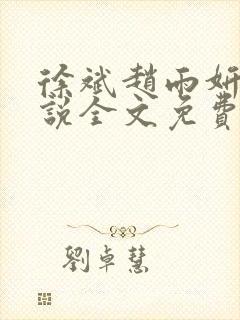 徐斌趙雨妍
說全文免費
劉卓慧